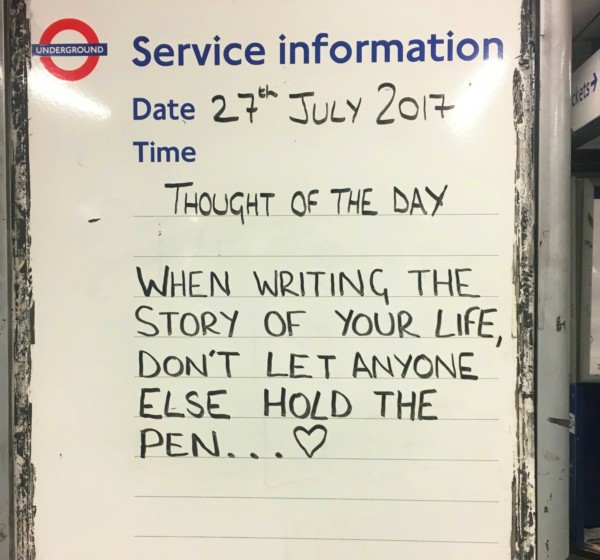 UNDERGROUND
Service information
Date 27th JULY 2017
Time
THOUGHT OF THE DAY
WHEN WRITING THE
STORY OF YOUR LIFE,
DON'T LET ANYONE
ELSE HOLD THE
PEN...♡